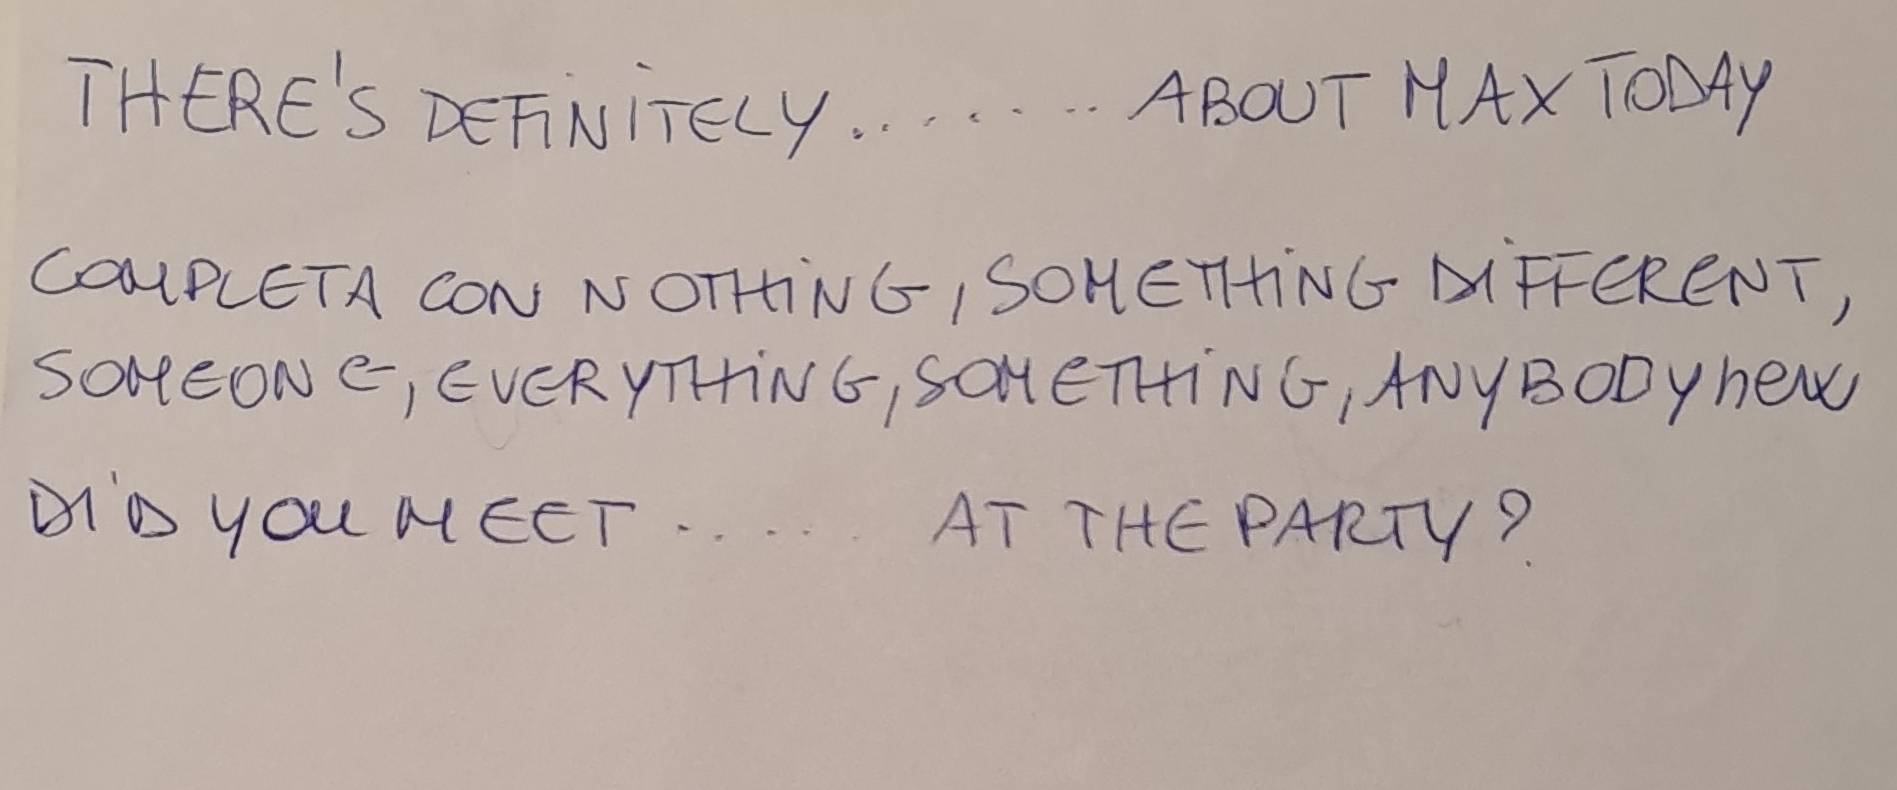 THERE'S DEFINITELY........ ABOUT MAX TODAY
COMPLETA CON NOTHING, SOMETHING DIFFERENT,
SOMEONE, EVERYTHING, SOMETHING, ANYBODY new
DID YOU MEET ..... AT THE PARTY?